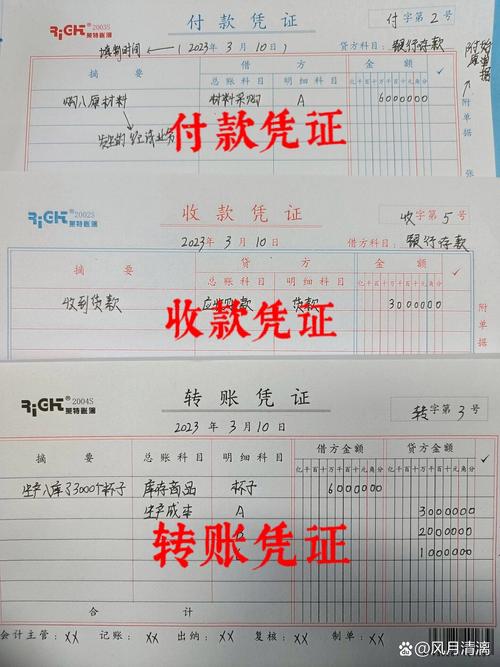 RiGHt® 2003S
莱特账簿
付款凭证
付字第2号
填制时间 (2023年3月10日) 贷方科目：银行存款
摘要 借方 金额 ✓
总账科目 明细科目 亿千百十万千百十元角分
购入原材料 材料采购 A 6000000
发生的经济业务
附单据 张
付款凭证
RiGHt® 2002S
莱特账簿
收款凭证
收字第5号
2023年3月10日 借方科目：银行存款
摘要 贷方 金额 ✓
总账科目 明细科目 亿千百十万千百十元角分
收到货款 应收账款 货款 3000000
附单据
收款凭证
RiGHt® 2004S
莱特账簿
转账凭证
转字第3号
2023年3月10日
摘要 总账科目 明细科目 借方金额 贷方金额 ✓
亿千百十万千百十元角分 亿千百十万千百十元角分
生产入库了3000个杯子 库存商品 杯子 6000000
生产成本 A 3000000
2000000
1000000
转账凭证
合计
会计主管：XX 记账：XX 出纳：XX 复核：XX 制单：XX
@风月清漓